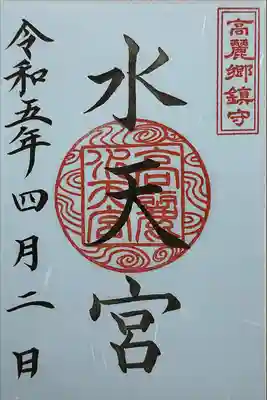 高麗郷鎮守
水天宮
高麗水天宮
令和五年四月二日